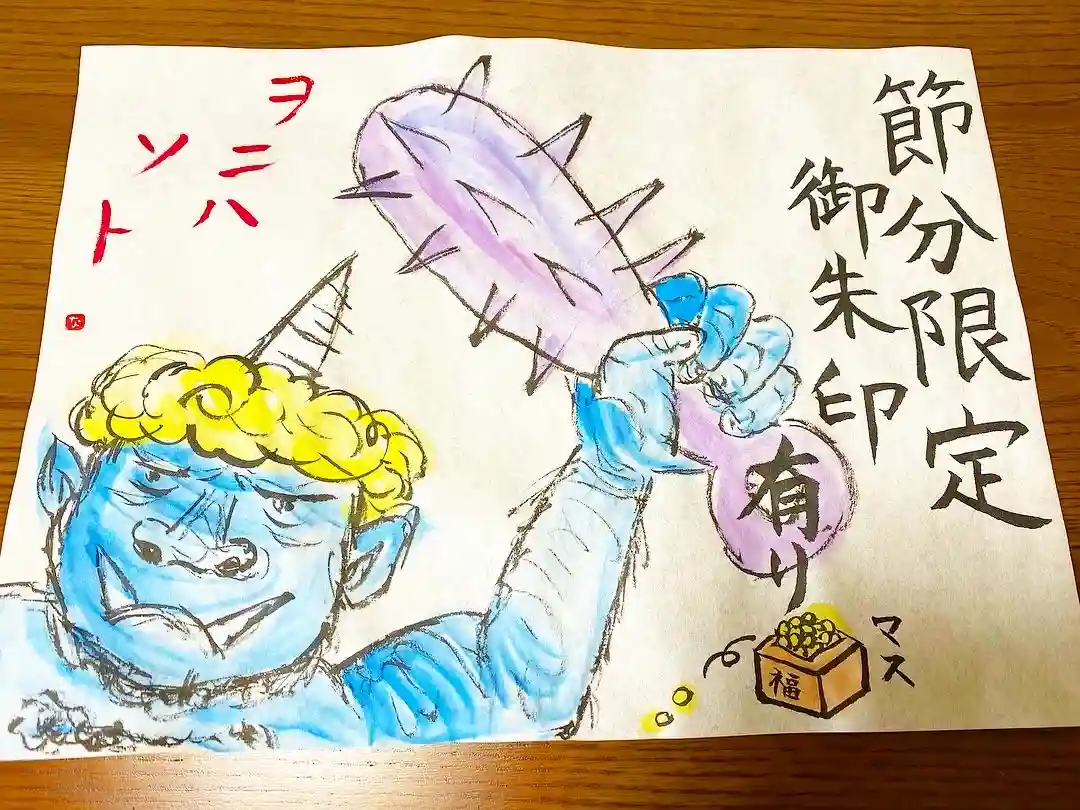 節分限定
御朱印
有り
マス
福
ヲニハ
ソト
な